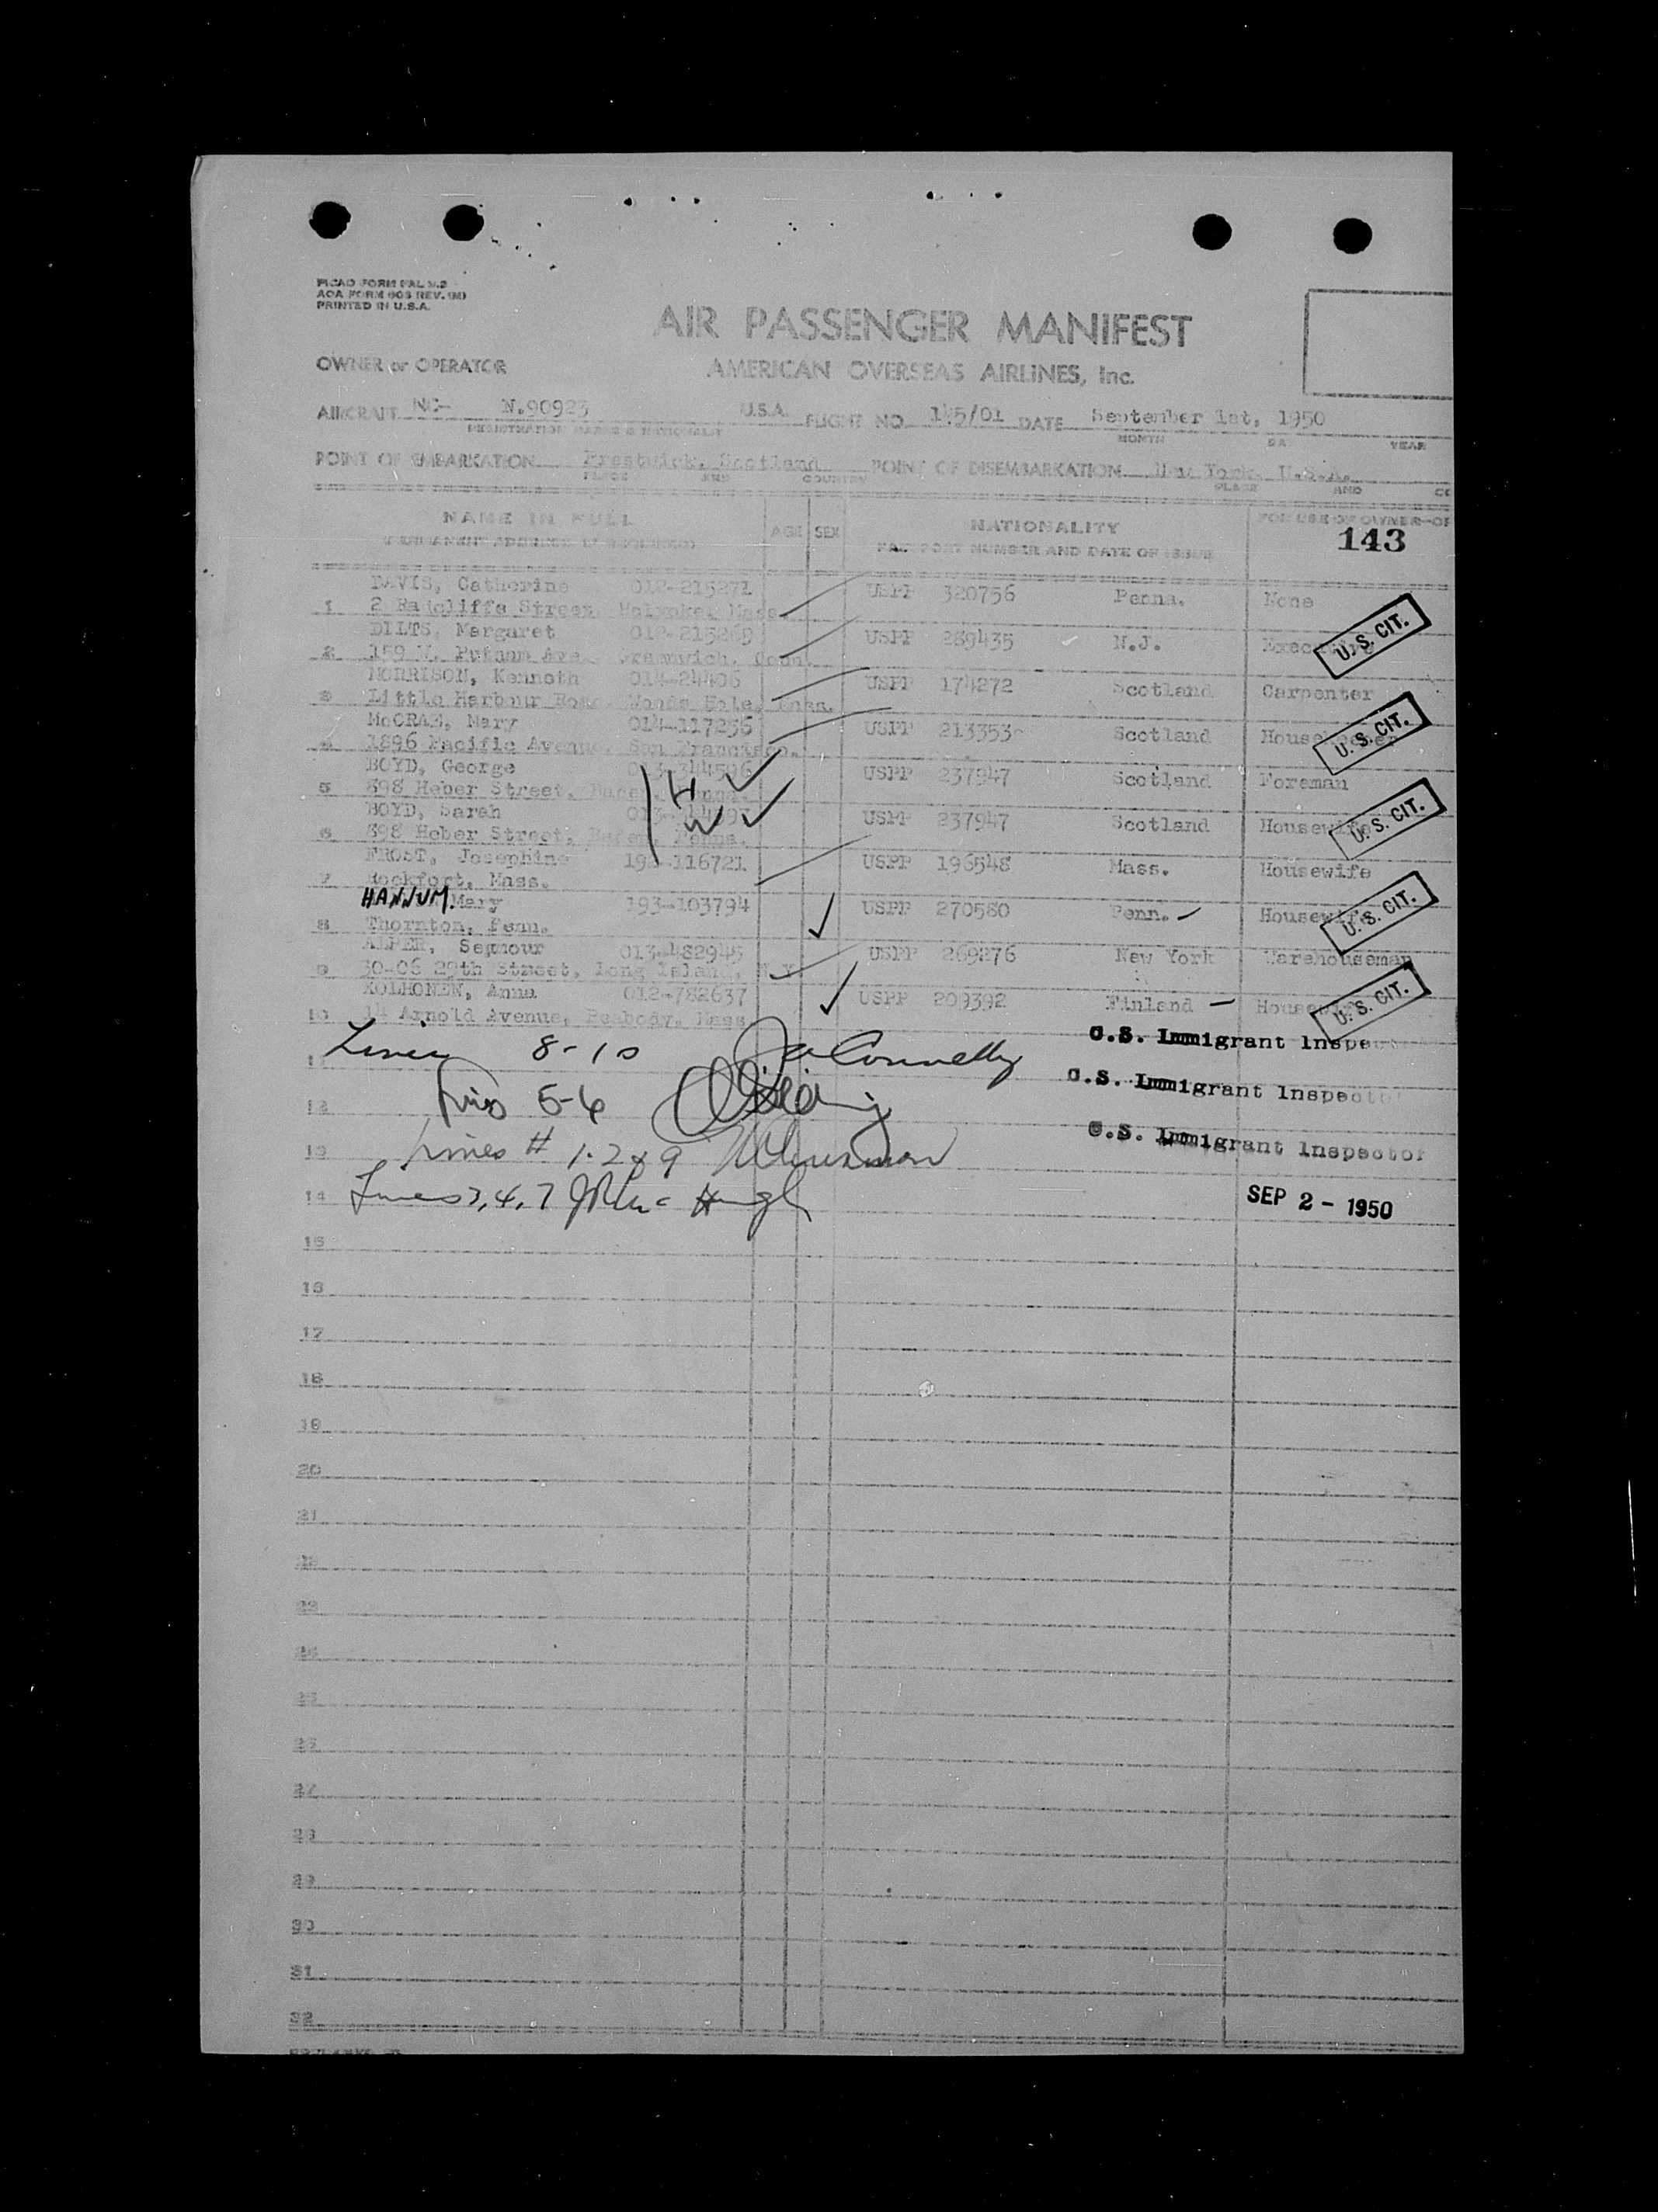 PICAO FORM PAL N.2
AOA FORM 903 REV. (M)
PRINTED IN U.S.A.
AIR PASSENGER MANIFEST
OWNER or OPERATOR AMERICAN OVERSEAS AIRLINES, Inc.
AIRCRAFT NC- N.90923 U.S.A. FLIGHT NO. DATE September 1st, 1950
REGISTRATION MARKS & NATIONALITY MONTH DAY YEAR
POINT OF EMBARKATION Prestwick, Scotland POINT OF DISEMBARKATION New York, U.S.A.
PLACE AND COUNTRY PLACE AND
NAME IN FULL AGE SEX NATIONALITY FOR USE OF OWNER OF
PASSPORT NUMBER AND DATE OF ISSUE 143
DAVIS, Catherine 012-215271 USPP 320756 Penna. None
1 2 Radcliffe Street, Holyoke, Mass.
DILTS, Margaret USPP 289435 N.J.
U.S. CIT.
2 159 W. Putnam Ave. Greenwich, Conn.
MORRISON, Kenneth 014-24406 USPP 174272 Scotland Carpenter
3 Little Harbour Woods Hole,
McCRAE, Mary 014-117256 USPP 213353 Scotland
U.S. CIT.
4 1896 Pacific Avenue, San Francisco.
BOYD, George USPP 237947 Scotland Foreman
5 898 Heber Street, H
BOYD, Sarah USPP 237947 Scotland Housewife
U.S. CIT.
6 898 Heber Street, Penna. W
FROST, Josephine 116721 USPP 196548 Mass. Housewife
7 Rockfort, Mass.
HANNUM, Mary 193-103794 USPP 270580 Penn. Housewife
U.S. CIT.
8 Thornton, Penn.
ALPER, Seymour 013-482945 USPP 269276 New York Warehouseman
9 30-06 29th Street, Long Island, N.Y.
KOLHONEN, Anna 012-782637 USPP 209392 Finland Housewife
U.S. CIT.
10 14 Arnold Avenue, Peabody, Mass
U.S. Immigrant Inspector
11 8-10 Connelly
U.S. Immigrant Inspector
12 5-6
U.S. Immigrant Inspector
13 Lines # 1.2 & 9
14 Lines 3, 4, 7 SEP 2 - 1950
15
16
17
18
19
20
21
22
23
24
25
26
27
28
29
30
31
32